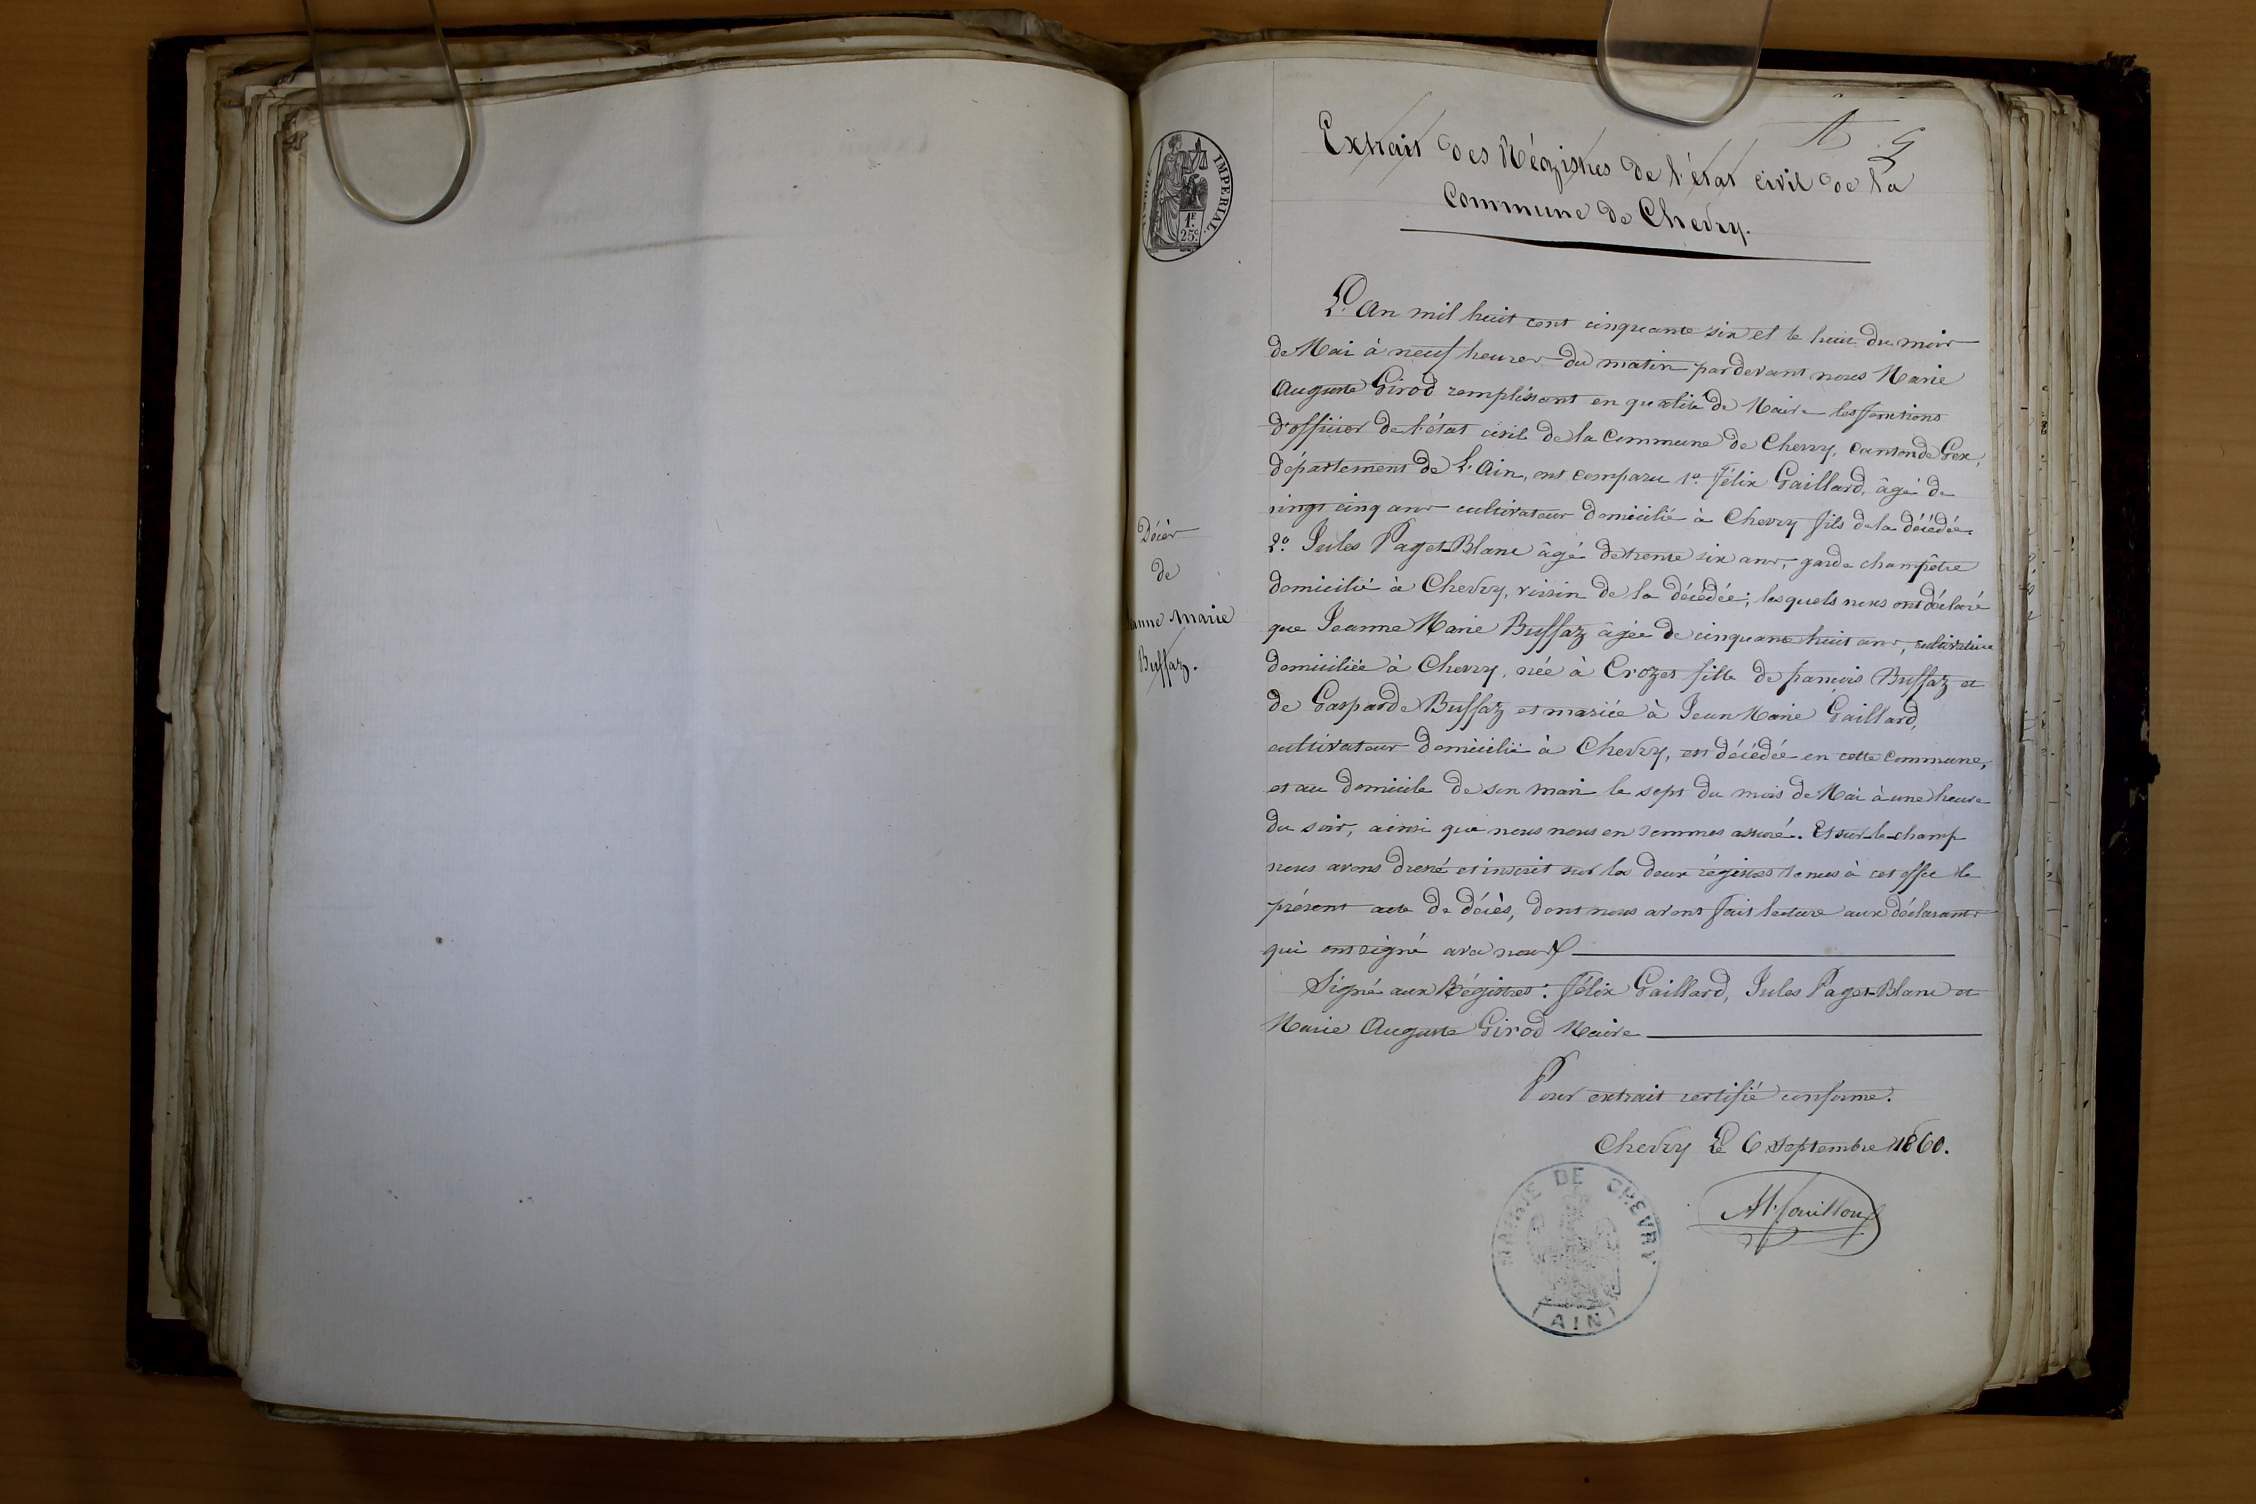 IMPERIAL.
1F.
25c.
A. G
Extrait des Régistres de l'état civil de la
Commune de Chevry.
Décès
de
Jeanne Marie
Buffaz.
L'An mil huit cent cinquante six et le huit du mois
de Mai à neuf heures du matin pardevant nous Marie
Auguste Girod remplissant en qualité de Maire les fonctions
d'officier de l'état civil de la Commune de Chevry, canton de Gex,
département de L'Ain, ont comparu 1º. Félix Gaillard, âgé de
vingt cinq ans cultivateur domicilié à Chevry fils de la décédée.
2º. Jules Paget-Blanc âgé de trente six ans, garde champêtre
domicilié à Chevry, voisin de la décédée; lesquels nous ont déclaré
que Jeanne Marie Buffaz âgée de cinquante huit ans, cultivatrice
domiciliée à Chevry, née à Crozet fille de françois Buffaz et
de Gasparde Buffaz et mariée à Jean Marie Gaillard,
cultivateur domicilié à Chevry, est décédée en cette commune,
et au domicile de son mari le sept du mois de Mai à une heure
du soir, ainsi que nous nous en sommes assuré. Et sur-le-champ
nous avons dressé et inscrit sur les deux régistres tenus à cet effet le
présent acte de décès, dont nous avons fait lecture aux déclarants
qui ont signé avec nous
Signé aux Régistres: Félix Gaillard, Jules Paget-Blanc et
Marie Auguste Girod Maire
Pour extrait certifié conforme.
Chevry Le 6 Septembre 1860.
MAIRIE DE CHEVRY
(AIN)